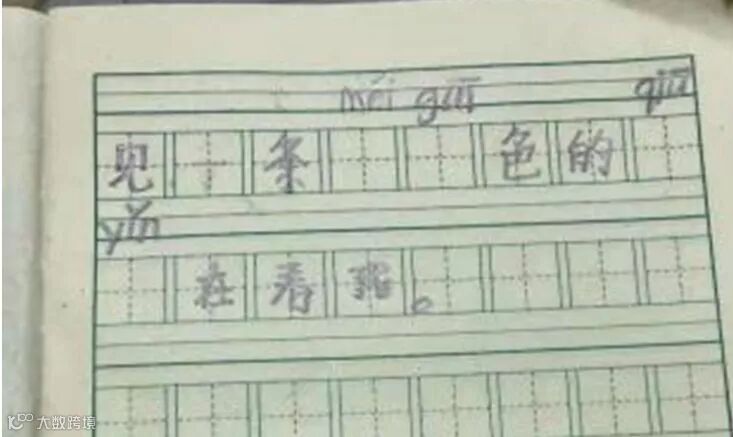 méi guī qiū
见一条色的
yǐn
在看我。
大数跨境